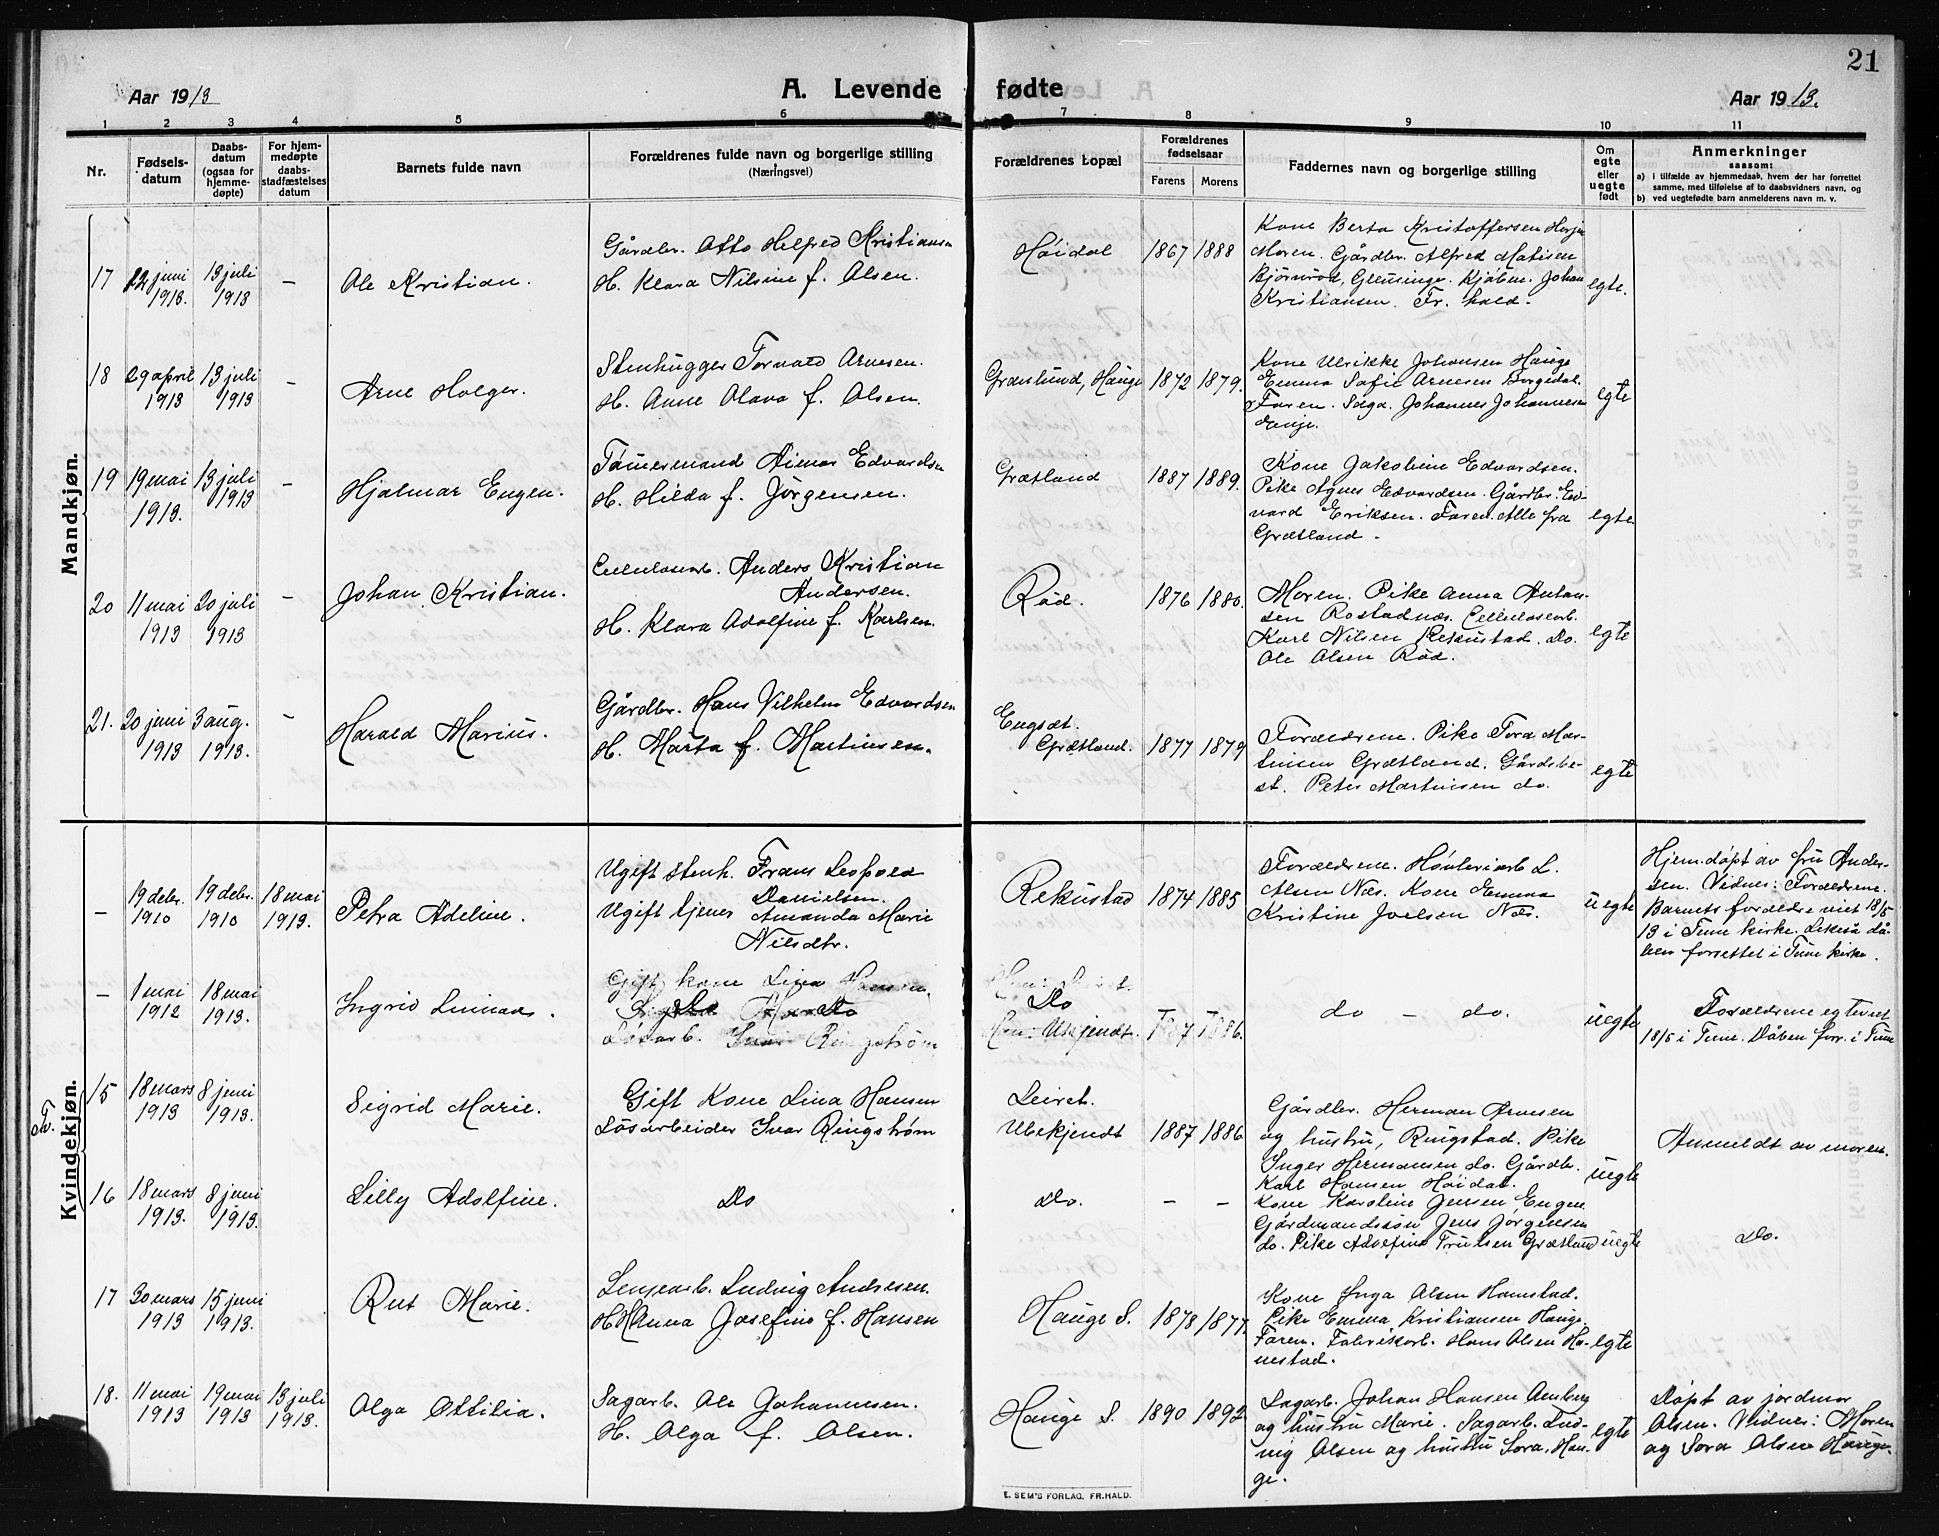 21
Aar 1913
A. Levende fødte
Aar 1913.
1 2 3 4 5 6 7 8 9 10 11
Nr.
Fødsels-
datum
Daabs-
datum
(ogsaa for
hjemme-
døpte)
For hjem-
medøpte
daabs-
stadfæstelses
datum
Barnets fulde navn
Forældrenes fulde navn og borgerlige stilling
(Næringsvei)
Forældrenes bopæl
Forældrenes
fødselsaar
Farens Morens
Faddernes navn og borgerlige stilling
Om
egte
eller
uegte
født
Anmerkninger
saasom:
a) i tilfælde av hjemmedaab, hvem der har forrettet
samme, med tilføielse af to daabsvidners navn, og
b) ved uegtefødte barn anmelderens navn m. v.
Mandkjøn.
17
22 juni
1913.
13 juli
1913
–
Ole Kristian.
Gårdbr. Otto Helfred Kristiansen
H. Klara Nilsine f. Olsen.
Høidal
1867 1888
Kone Berta Kristoffersen
Moren. Gårdbr. Alfred Matisen
Bjørnrød, Glenninge. Kjøbm. Johan
Kristiansen. Fr.hald.
egte.
18
29 april
1913
13 juli
1913
–
Arne Holger.
Stenhugger Torvald Arnesen.
H. Anne Olava f. Olsen.
Grønlund, Hauge
1872 1879.
Kone Ulrikke Johansen Hauge
Emma Sofie Arnesen Borgedal.
Faren. Saga. Johannes Johannesen
Enge.
egte
19
19 mai
1913.
13 juli
1913
–
Hjalmar Eugen.
Tømmermand Aimar Edvardsen
H. Hilda f. Jørgensen.
Grætland
1887 1889.
Kone Jakobine Edvardsen.
Pike Agnes Edvardsen. Gårdbr. Ed-
vard Eriksen. Faren. Alle fra
Grætland.
egte
20
11 mai
1913
20 juli
1913
–
Johan Kristian.
Cellulosearb. Anders Kristian
Andersen.
H. Klara Adolfine f. Karlsen.
Rød.
1876 1880.
Moren. Pike Anna Anton-
sen Rostadnæs. Cellulosearb.
Karl Nilsen Rekustad. Do.
Ole Olsen Rød.
egte
21.
20 juni
1913
3 aug.
1913.
–
Harald Marius.
Gårdbr. Hans Vilhelm Edvardsen
H. Marta f. Martinsen.
Engsæt.
Grætland.
1877 1879
Forældrene. Pike Tora Mar-
tinsen Grætland. Gårdbe-
st. Peter Martinsen do.
egte
Kvindekjøn.
Tv.
–
19 debr.
1910
19 debr.
1910
18 mai
1913.
Petra Adeline.
Ugift stenh. Frans Leopold
Danielsen.
Ugift tjener Amanda Marie
Nilsdtr.
Rekustad
1874 1885
Forældrene. Høvleriarb. L.
Olsen Næs. Kone Emma
Kristine Joelsen Næs.
uegte
Hjem.døpt av fru Ander-
sen. Vidner: Forældrene.
Barnets forældre viet 18/5
13 i Tune kirke. Likeså då-
ben forrettet i Tune kirke.
–
1 mai
1912
18 mai
1913.
Ingrid
Gift kone Lina Hansen.
Do Do
Løsarb. Ivar Ringstrøm
Do
Ubkjendt.
1887 1886.
do – do.
uegte
Forældrene egteviet
18/5 i Tune. Dåben forr. i Tune
15
18 mars
1913
8 juni
1913.
Sigrid Marie.
Gift Kone Lina Hansen
Løsarbeider Ivar Ringstrøm
Leiret.
Ubekjendt
1887 1886
Gårdbr. Herman Arnesen
og hustru, Ringstad. Pike
Inger Hermansen do. Gårdbr.
Karl Hansen Høidal.
uegte
Anmeldt av moren.
16
18 mars
1913.
8 juni
1913.
Lilly Adolfine.
Do
do.
– –
Kone Karoline Jensen Engen
Gårdmandssøn Jens Jørgensen
do. Pike Adolfine Trulsen Grætland
uegte
Do.
17
30 mars
1913
15 juni
1913.
Rut Marie.
Lensearb. Ludvig Andresen.
H. Hanna Josefine f. Hansen
Hauge S.
1878 1877.
Kone Inga Olsen Hanestad.
Pike Emma Kristiansen Hauge.
Faren. Fabrikarb. Hans Olsen Ha-
nestad.
egte
18.
11 mai
1913
19 mai
1913
13 juli
1913.
Olga Ottilia.
Sagarb. Ole Johannesen.
H. Olga f. Olsen.
Hauge S.
1890 1892
Sagarb. Johan Hansen Amberg
og hustru Marie. Sagarb. Lud-
vig Olsen og hustru Tora, Hau-
ge.
egte
Døpt av jordmor
Olsen. Vidner: Moren
og Tora Olsen Hauge.
E. SEM'S FORLAG, FR.HALD.